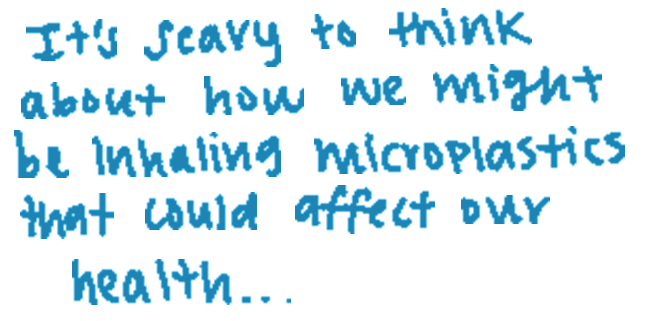 It's scary to think
about how we might
be inhaling microplastics
that could affect our
health...